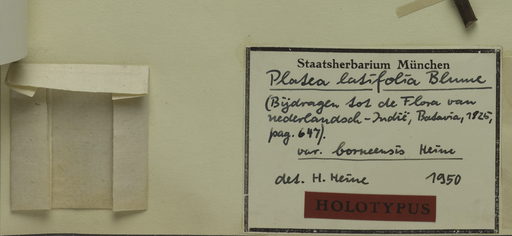 Staatsherbarium München
Platea latifolia Blume
(Bijdragen tot de Flora van
nederlandsch-Indië, Batavia, 1825,
pag. 647).
var. borneensis Heine
det. H. Heine 1950
HOLOTYPUS